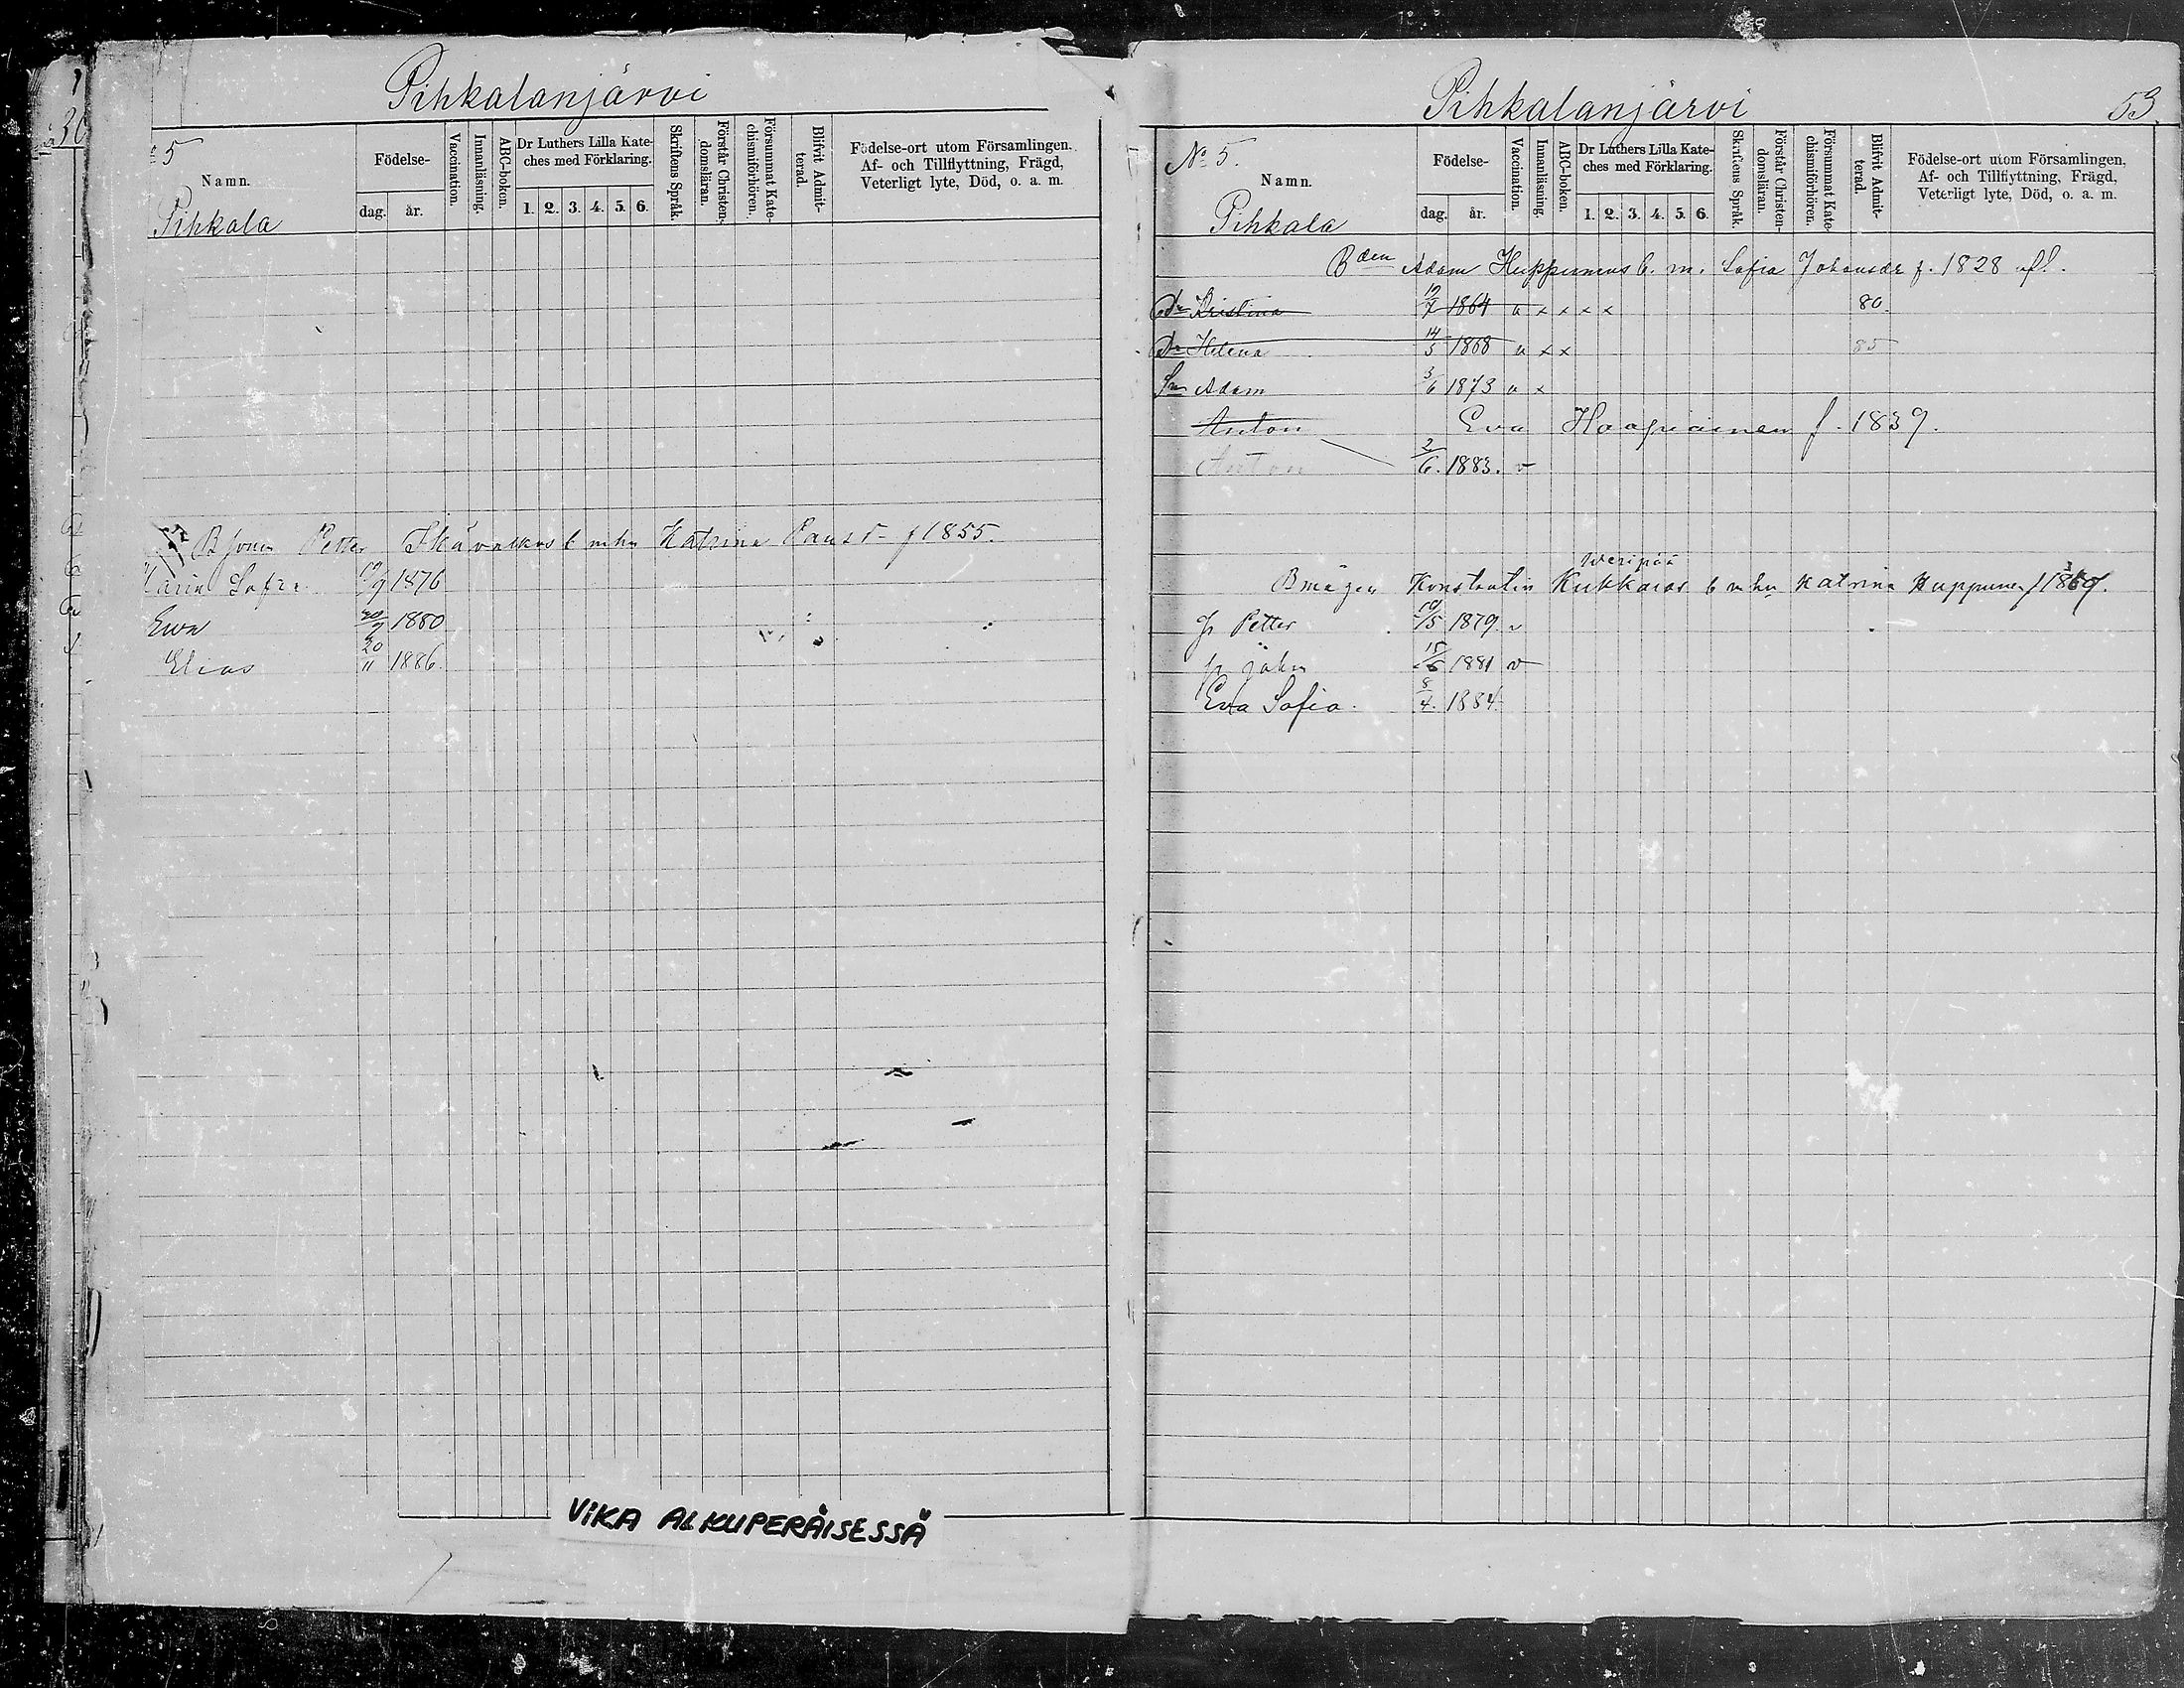 Pihkalanjärvi
№ 5
Namn.
Pihkala
Födelse-
dag. år.
Vaccination.
Innanläsning.
ABC-boken.
Dr Luthers Lilla Kate-
ches med Förklaring.
1. 2. 3. 4. 5. 6.
Skriftens Språk.
Förstår Christen-
domsläran.
Försummat Kate-
chismiförhören.
Blifvit Admit-
terad.
Födelse-ort utom Församlingen.
Af- och Tillflyttning, Frägd,
Veterligt lyte, Död, o. a. m.
Petter b mhu Katrina f 1855.
Sofia 9 1876
Ewa 20/9 1880
Elias 20/11 1886.
VIKA ALKUPERÄISESSÄ
Pihkalanjärvi
53.
№ 5.
Namn.
Pihkala
Födelse-
dag. år.
Vaccination.
Innanläsning.
ABC-boken.
Dr Luthers Lilla Kate-
ches med Förklaring.
1. 2. 3. 4. 5. 6.
Skriftens Språk.
Förstår Christen-
domsläran.
Försummat Kate-
chismiförhören.
Blifvit Admit-
terad.
Födelse-ort utom Församlingen,
Af- och Tillflyttning, Frägd,
Veterligt lyte, Död, o. a. m.
Bden Adam Huppunens b. m. Sofia Johansdr f. 1828 fl.
Dr Kristina 1864 v x x x x 80.
Dr Helena 14/5 1868 v x x 85
Sn Adam 3/6 1873 v x
Anton Eva Haapiainen f. 1839.
Anton 2/6. 1883. v
Konstantin Kukkaras b mhu Katrina Huppunen
Petter 1879. v
1881 v
Eva Sofia. 8/4. 1884.